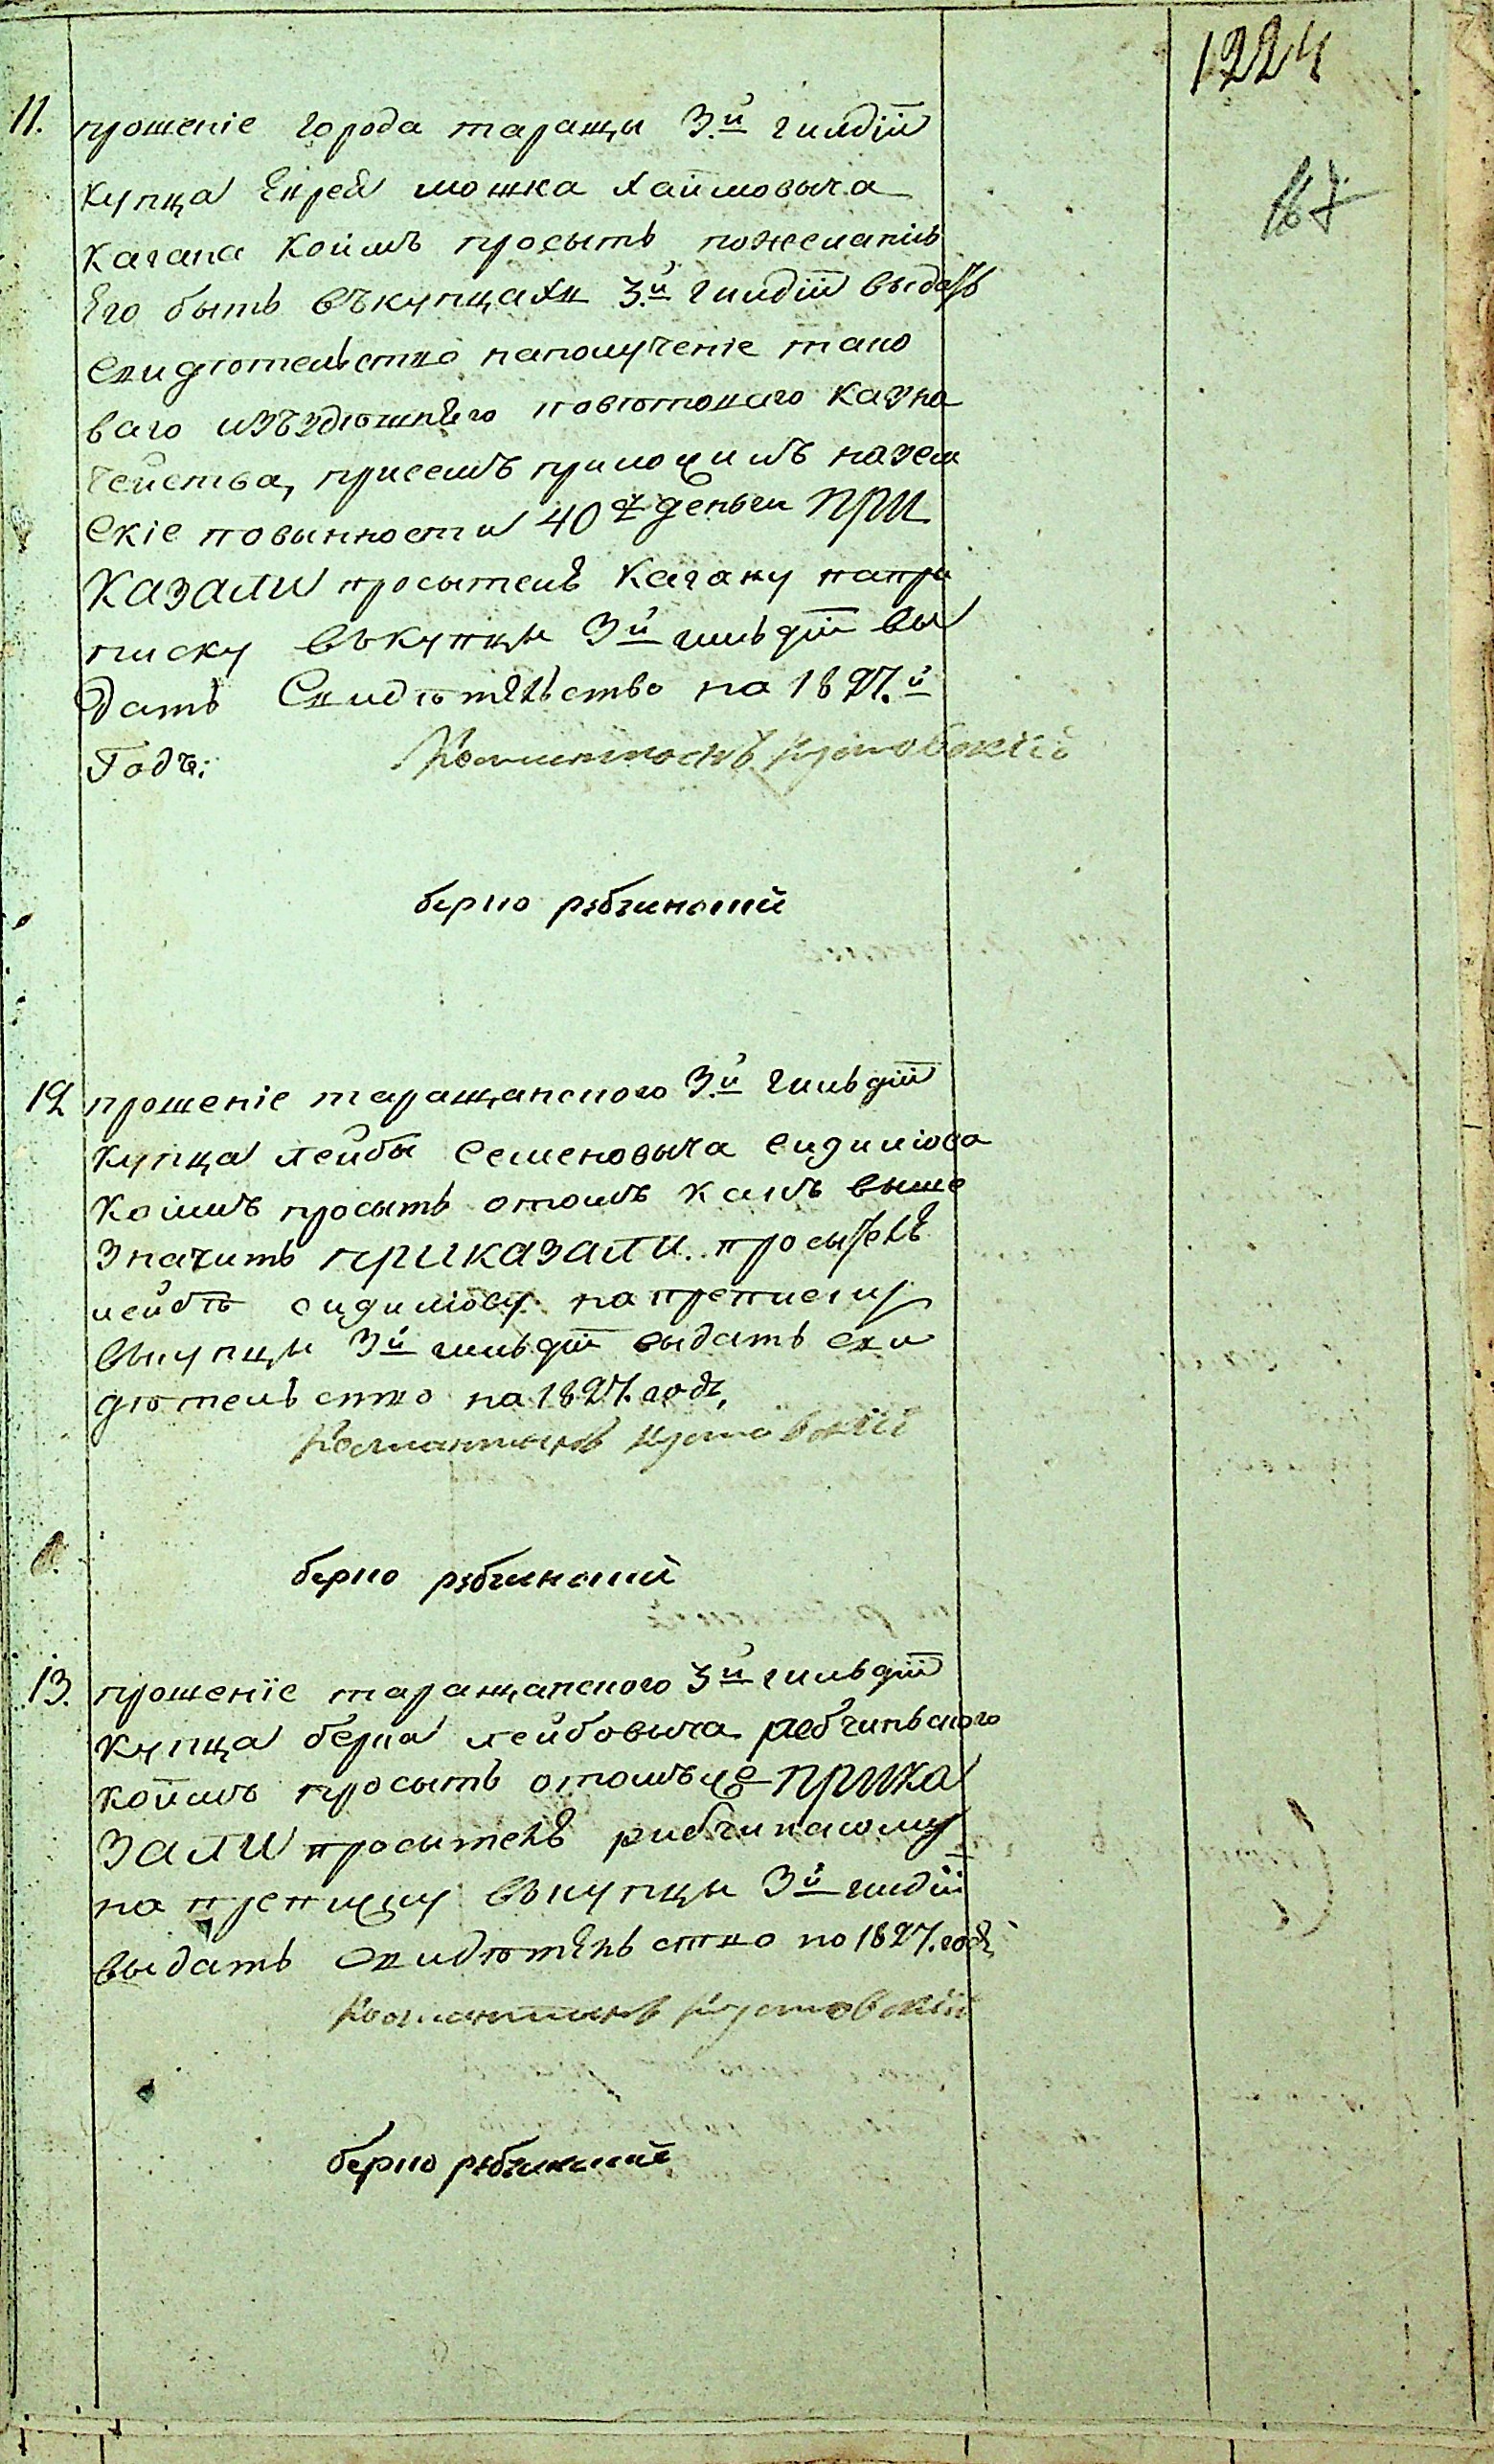 1224
167
11. прошеніе города таращи 3.й гилдіи
купца Еврея мошка хаимовыча
кагана коимъ просытъ пожеланію
Его быть въкупцахъ 3.й гилдіи выдать
свидѣтельство наполученіе тако
ваго изъздѣшнѣго повѣтоваго казна
чейства, присемъ приложилъ назем
скіе повынности 40 р деньги При
казали просытелѣ кагану напри
писку въкупцы 3й гильдіи вы
дать Свидѣтельство на 1827.й
Годъ:
Константинъ Кутовскій
берко рѣбчинский
12 прошеніе таращанского 3.й гильдіи
купца лейбы семеновыча сидиліова
коимъ просытъ отомъ какъ выше
значитъ приказали. просытелѣ
лейбѣ сидиліову напреписку
вкупцы 3й гильдіи выдать сви
дѣтельство на 1827. годъ,
Константинъ Кутовскій
берко рѣбчинский
13. прошеніе таращанского 3й гильдіи
купца берка лейбовыча рябчинского
коимъ просытъ отомъже Прика
зали просытелѣ рибчинскому
на препищу вкупцы 3й гилдіи
выдать Свидѣтельство на 1827. годъ
Константинъ Кутовскій
берко рѣбчинский